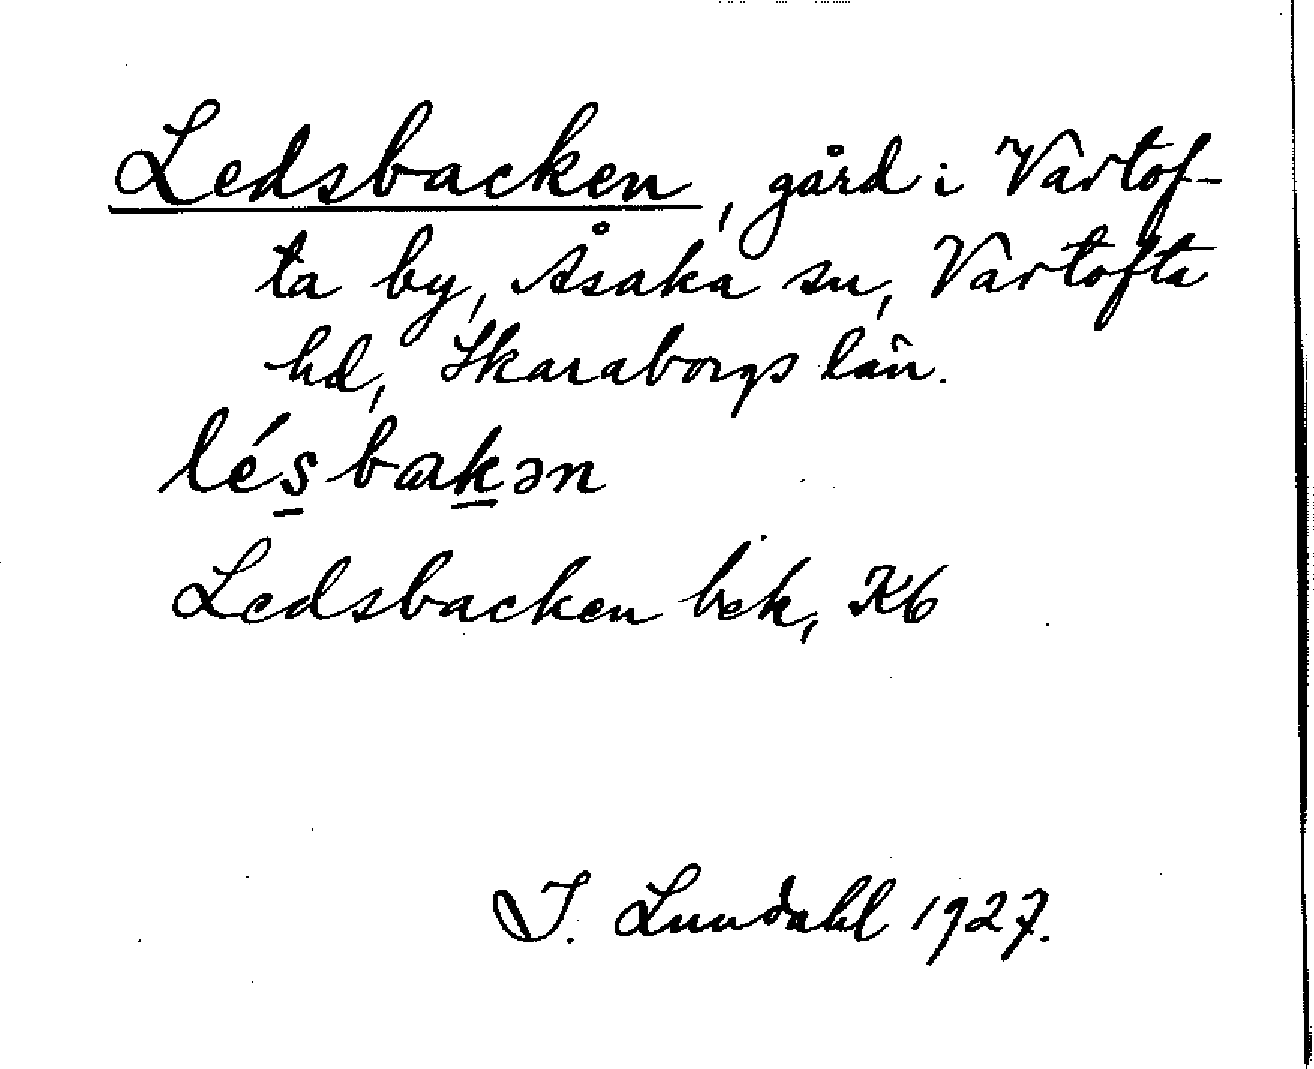 Ledsbacken, gård i Vartof-
ta by, Åsaka sn, Vartofta
hd, Skaraborgs län.
lés̠bak̠ən
Ledsbacken bek, Kb
I. Lundahl 1927.